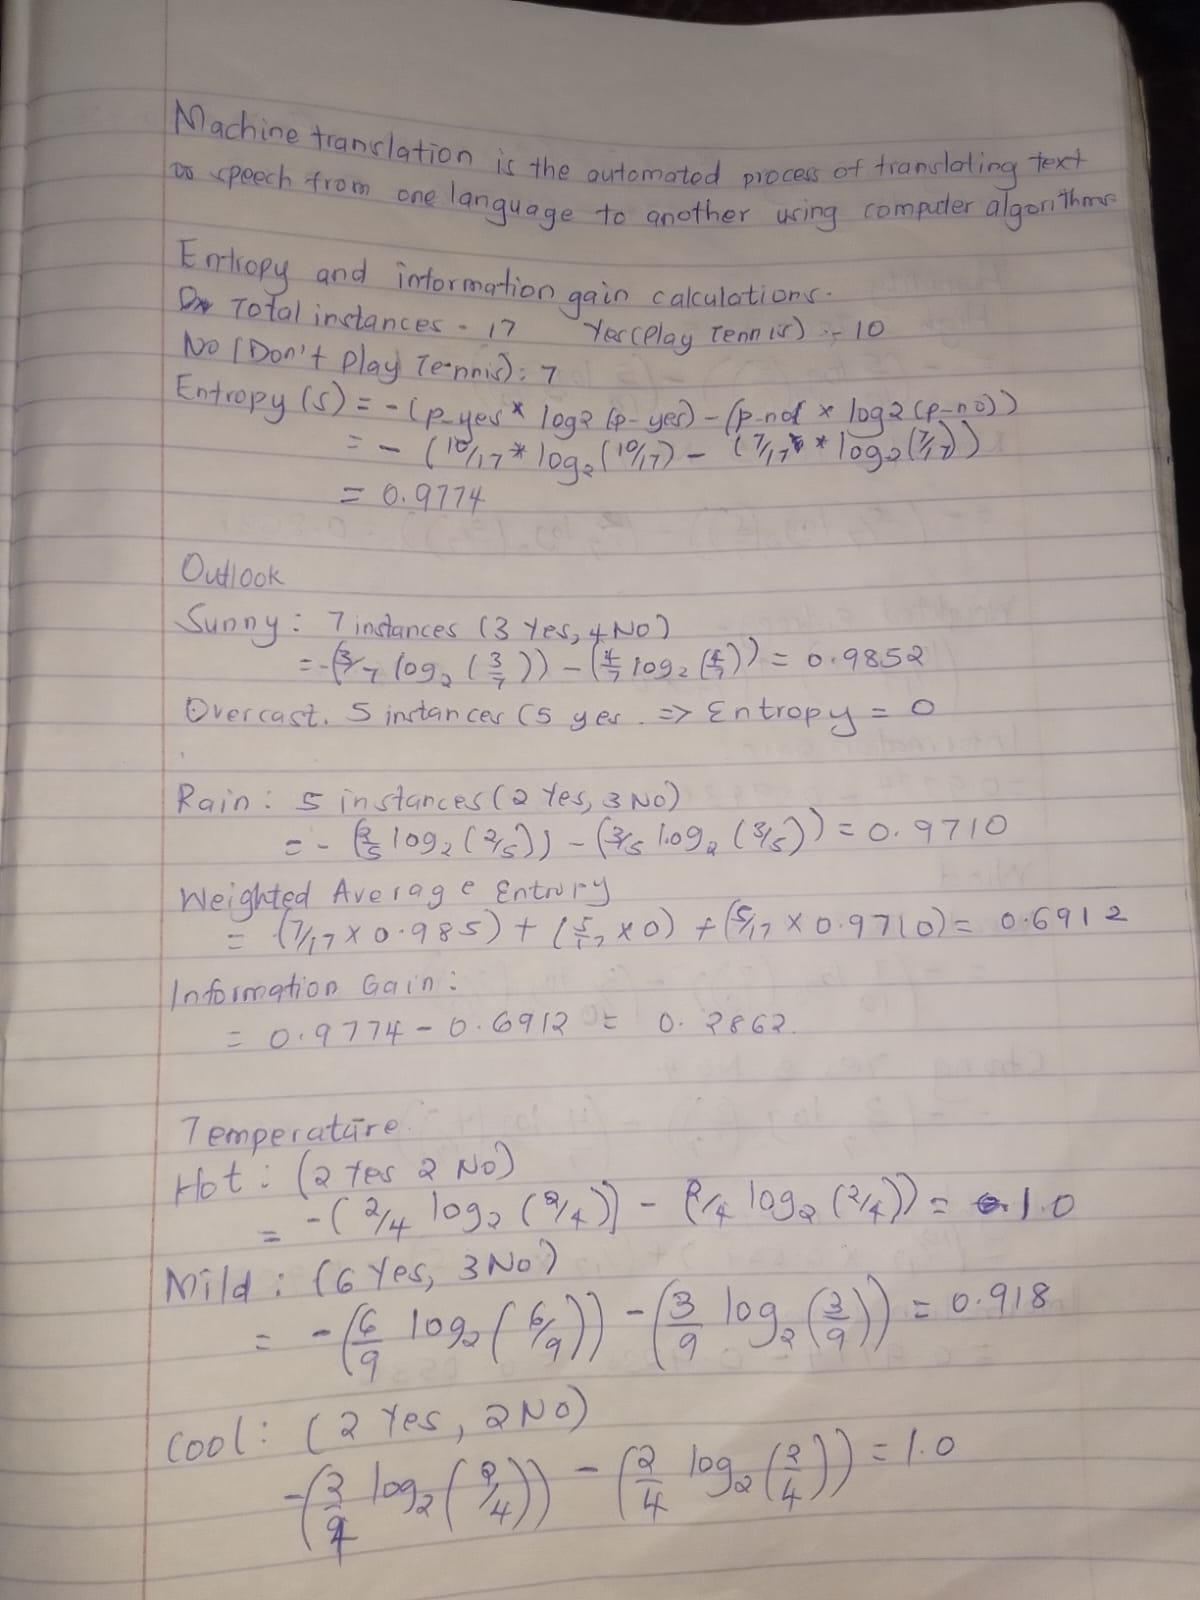 Machine translation is the automated process of translating text
or speech from one language to another using computer algorithms
Entropy and information gain calculations.
Total instances - 17 Yes (Play Tennis) :- 10
No (Don't Play Tennis): 7
Entropy (S) = -(p-yes * log2 (p-yes) - (p-not * log2 (p-no))
= - (10/17 * log₂ (10/17) - (7/17 * log₂ (7/17))
= 0.9774
Outlook
Sunny: 7 instances (3 Yes, 4 No)
= -(3/7 log₂ (3/7)) - (4/7 log₂ (4/7)) = 0.9852
Overcast. 5 instances (5 yes. => Entropy = 0
Rain: 5 instances (2 Yes, 3 No)
= - (2/5 log₂ (2/5)) - (3/5 log₂ (3/5)) = 0.9710
Weighted Average Entropy
= (7/17 x 0.985) + (5/17 x 0) + (5/17 x 0.9710) = 0.6912
Information Gain:
= 0.9774 - 0.6912 = 0.2862.
Temperature.
Hot: (2 Yes 2 No)
= -(2/4 log₂ (2/4)) - (2/4 log₂ (2/4)) = 1.0
Mild: (6 Yes, 3 No)
= -(6/9 log₂ (6/9)) - (3/9 log₂ (3/9)) = 0.918
Cool: (2 Yes, 2 No)
-(2/4 log₂ (2/4)) - (2/4 log₂ (2/4)) = 1.0